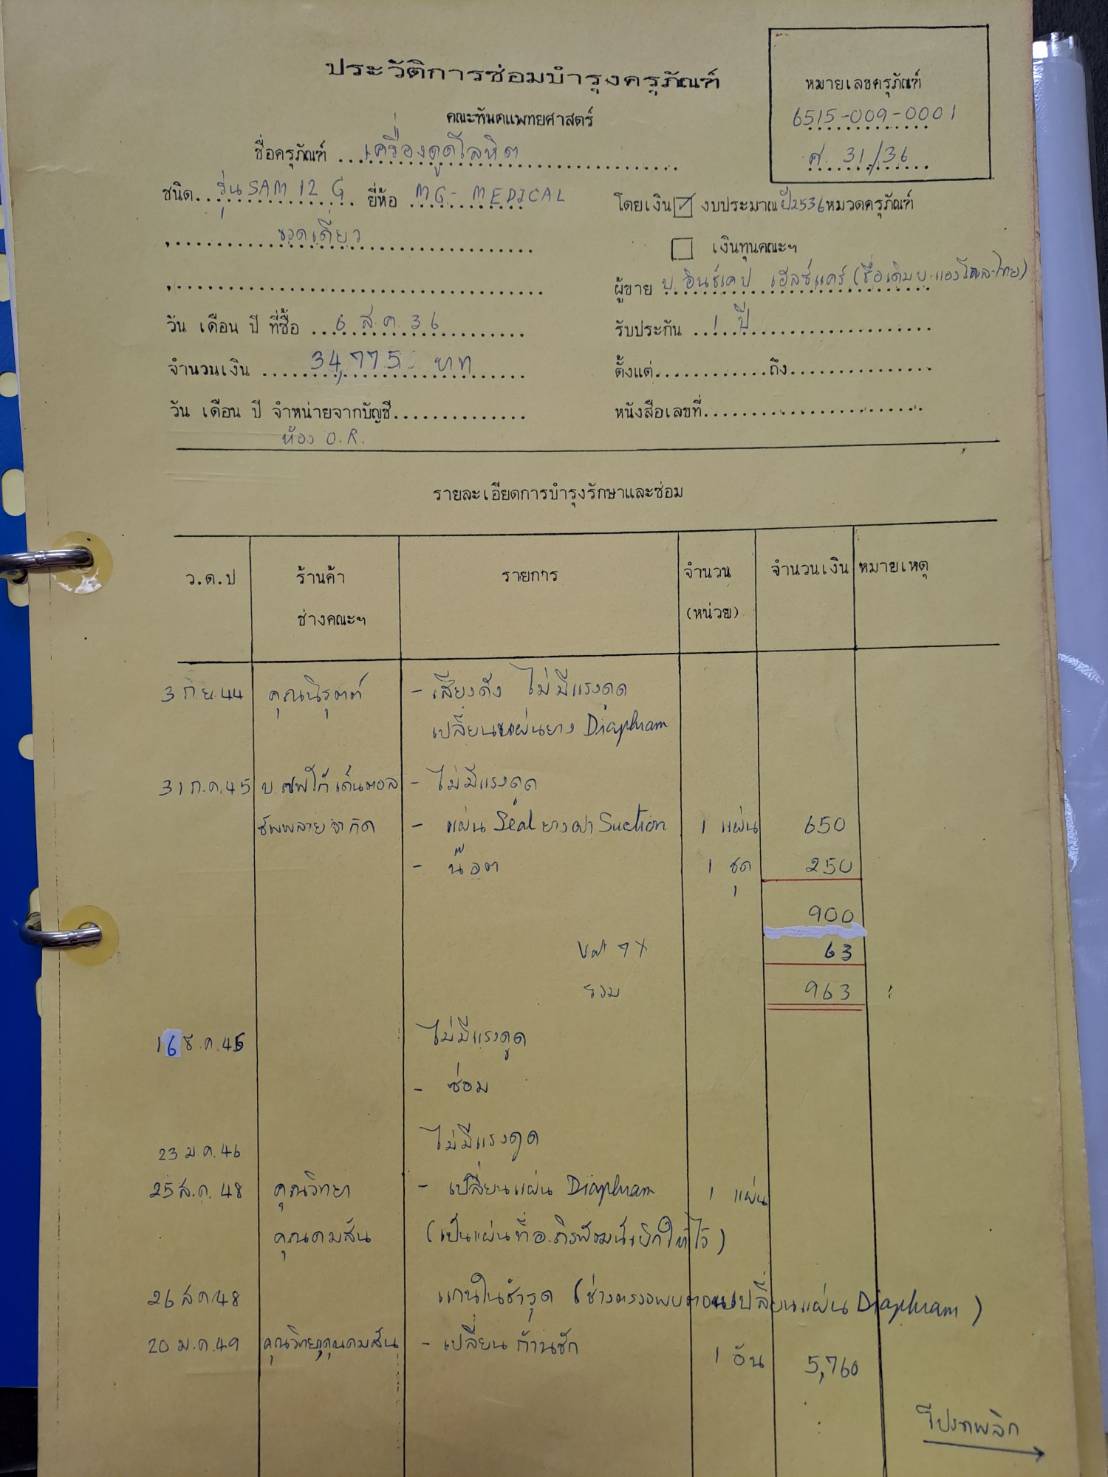 ประวัติการซ่อมบำรุงครุภัณฑ์
คณะทันตแพทยศาสตร์
หมายเลขครุภัณฑ์
6515-009-0001
ศ. 31/36
ชื่อครุภัณฑ์ เครื่องดูดโลหิต
ชนิด รุ่น SAM 12 G ยี่ห้อ MG-MEDICAL
ขวดเดี่ยว
โดยเงิน ☑ งบประมาณปี2536หมวดครุภัณฑ์
☐ เงินทุนคณะฯ
ผู้ขาย บ. อินช์เคป เฮ้ลธ์แคร์ (ชื่อเดิม บ.แองโกลไทย)
วัน เดือน ปี ที่ซื้อ 6 ส.ค. 36
รับประกัน 1 ปี
จำนวนเงิน 34,775.- บาท
ตั้งแต่ ถึง
วัน เดือน ปี จำหน่ายจากบัญชี
หนังสือเลขที่
ห้อง O.R.
รายละเอียดการบำรุงรักษาและซ่อม
ว.ด.ป ร้านค้า รายการ จำนวน จำนวนเงิน หมายเหตุ
ช่างคณะฯ (หน่วย)
3 ก.ย. 44 คุณนิรุตต์ - เสียงดัง ไม่มีแรงดูด
เปลี่ยนแผ่นยาง Diaphram
31 ก.ค. 45 บ. เด็นตอล - ไม่มีแรงดูด
ซัพพลาย จำกัด - แผ่น Seal ยางฝา Suction 1 แผ่น 650
- น๊อต 1 ชุด 250
900
Vat 7% 63
รวม 963
16 ธ.ค. 45 ไม่มีแรงดูด
- ซ่อม
23 ม.ค. 46 ไม่มีแรงดูด
25 ส.ค. 48 คุณวิทยา - เปลี่ยนแผ่น Diaphram 1 แผ่น
คุณคมสัน (เป็นแผ่นที่ อ. เบิกให้ไว้)
26 ส.ค. 48 แกนในชำรุด (ช่างตรวจพบตอนเปลี่ยนแผ่น Diaphram)
20 ม.ค. 49 คุณวิทยา,คุณคมสัน - เปลี่ยน ก้านชัก 1 อัน 5,760
โปรดพลิก